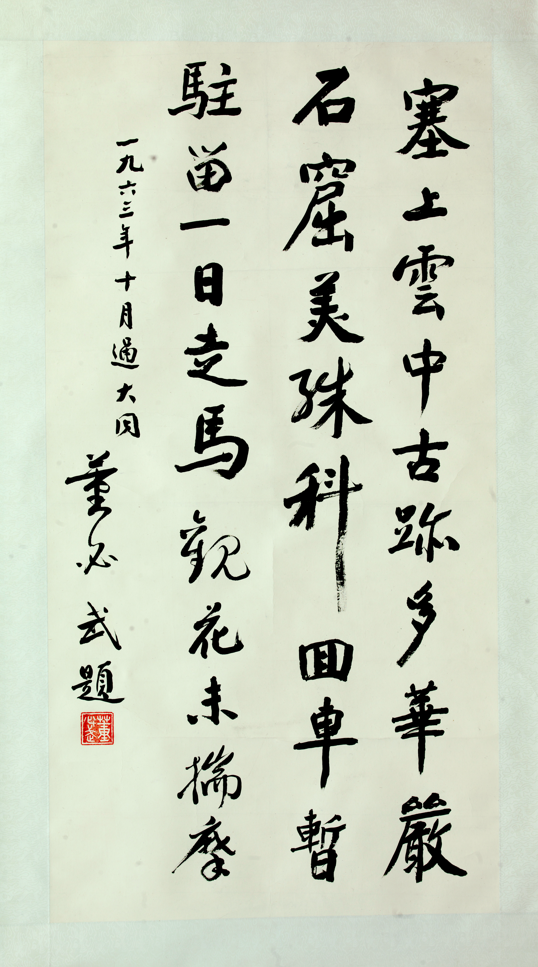 塞上雲中古跡多華嚴
石窟美殊科回車暫
駐留一日走馬觀花未揣摩
一九六三年十月過大同
董必武題
董必武